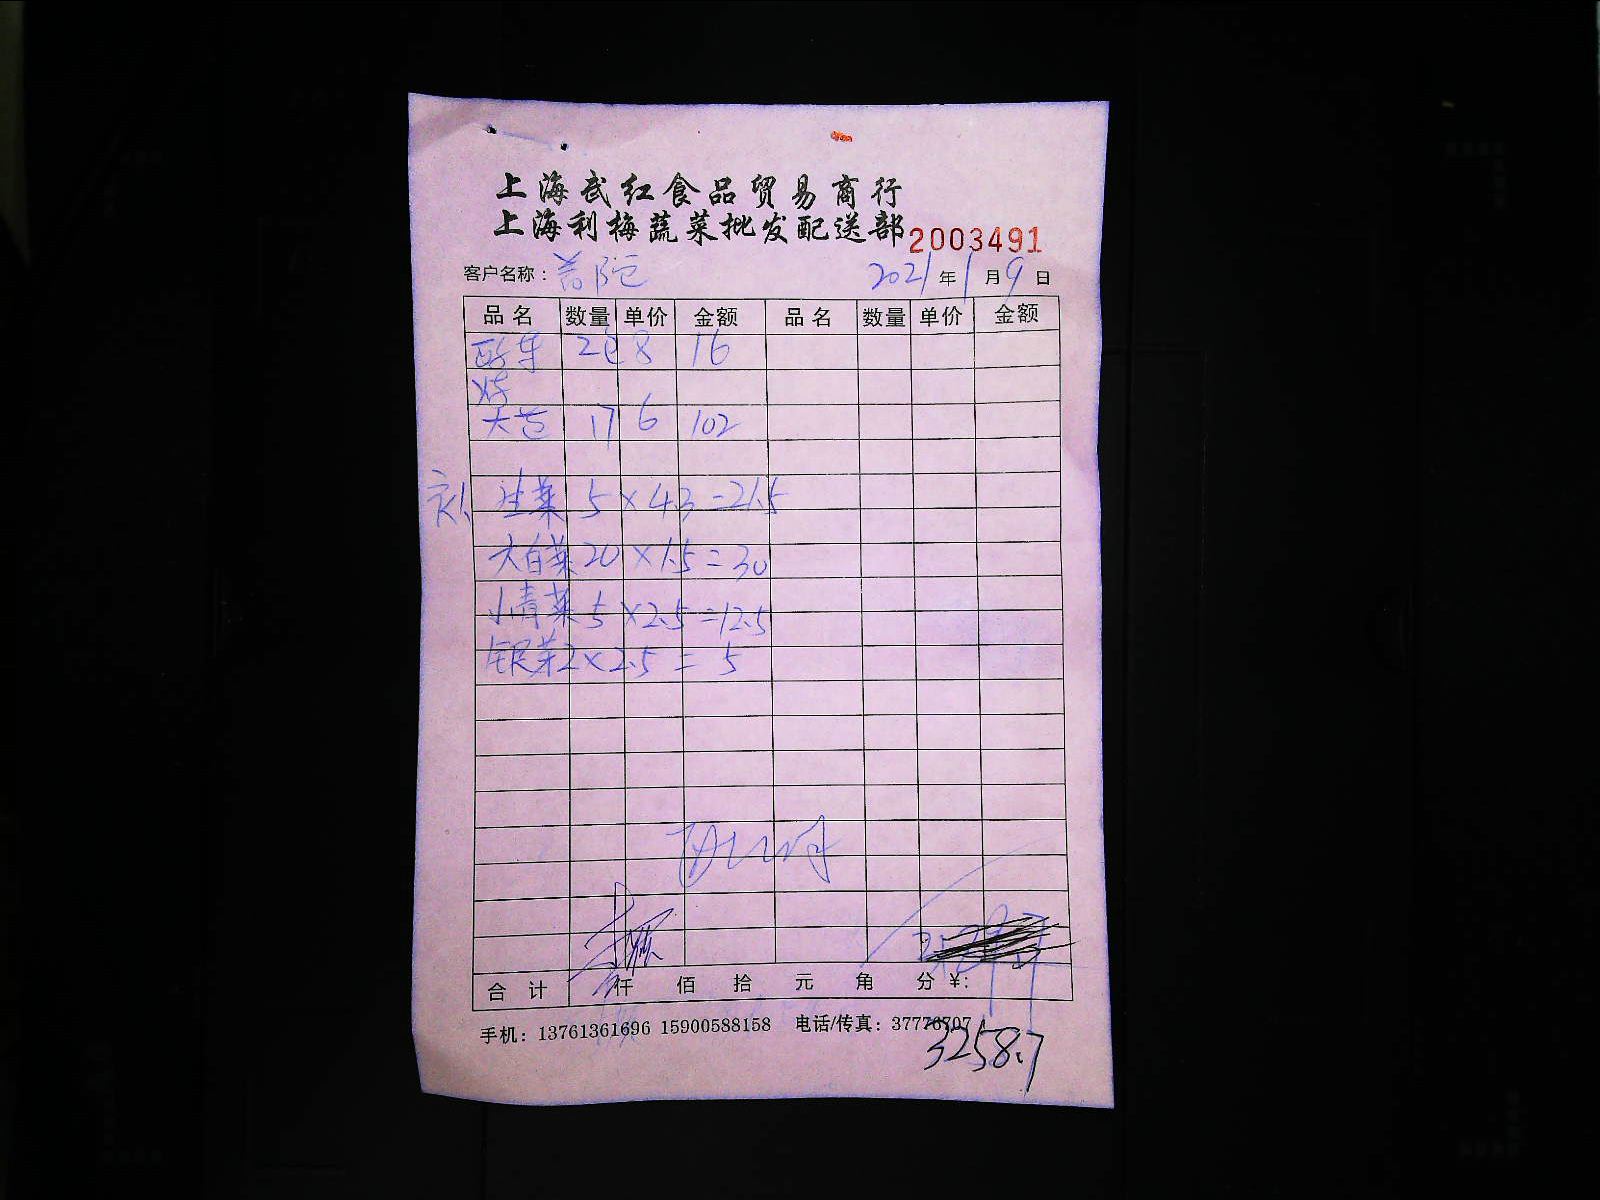 上海武红食品贸易商行
上海利梅蔬菜批发配送部 2003491
客户名称： 2021年1月9日
品名 数量 单价 金额 品名 数量 单价 金额
2包 8 16
17 6 102
生菜 5×4.3=21.5
大白菜 20×1.5=30
小青菜 5×2.5=12.5
银芽 2×2.5=5
合计 仟 佰 拾 元 角 分 ¥:
手机：13761361696 15900588158 电话/传真：37776707
3258.7